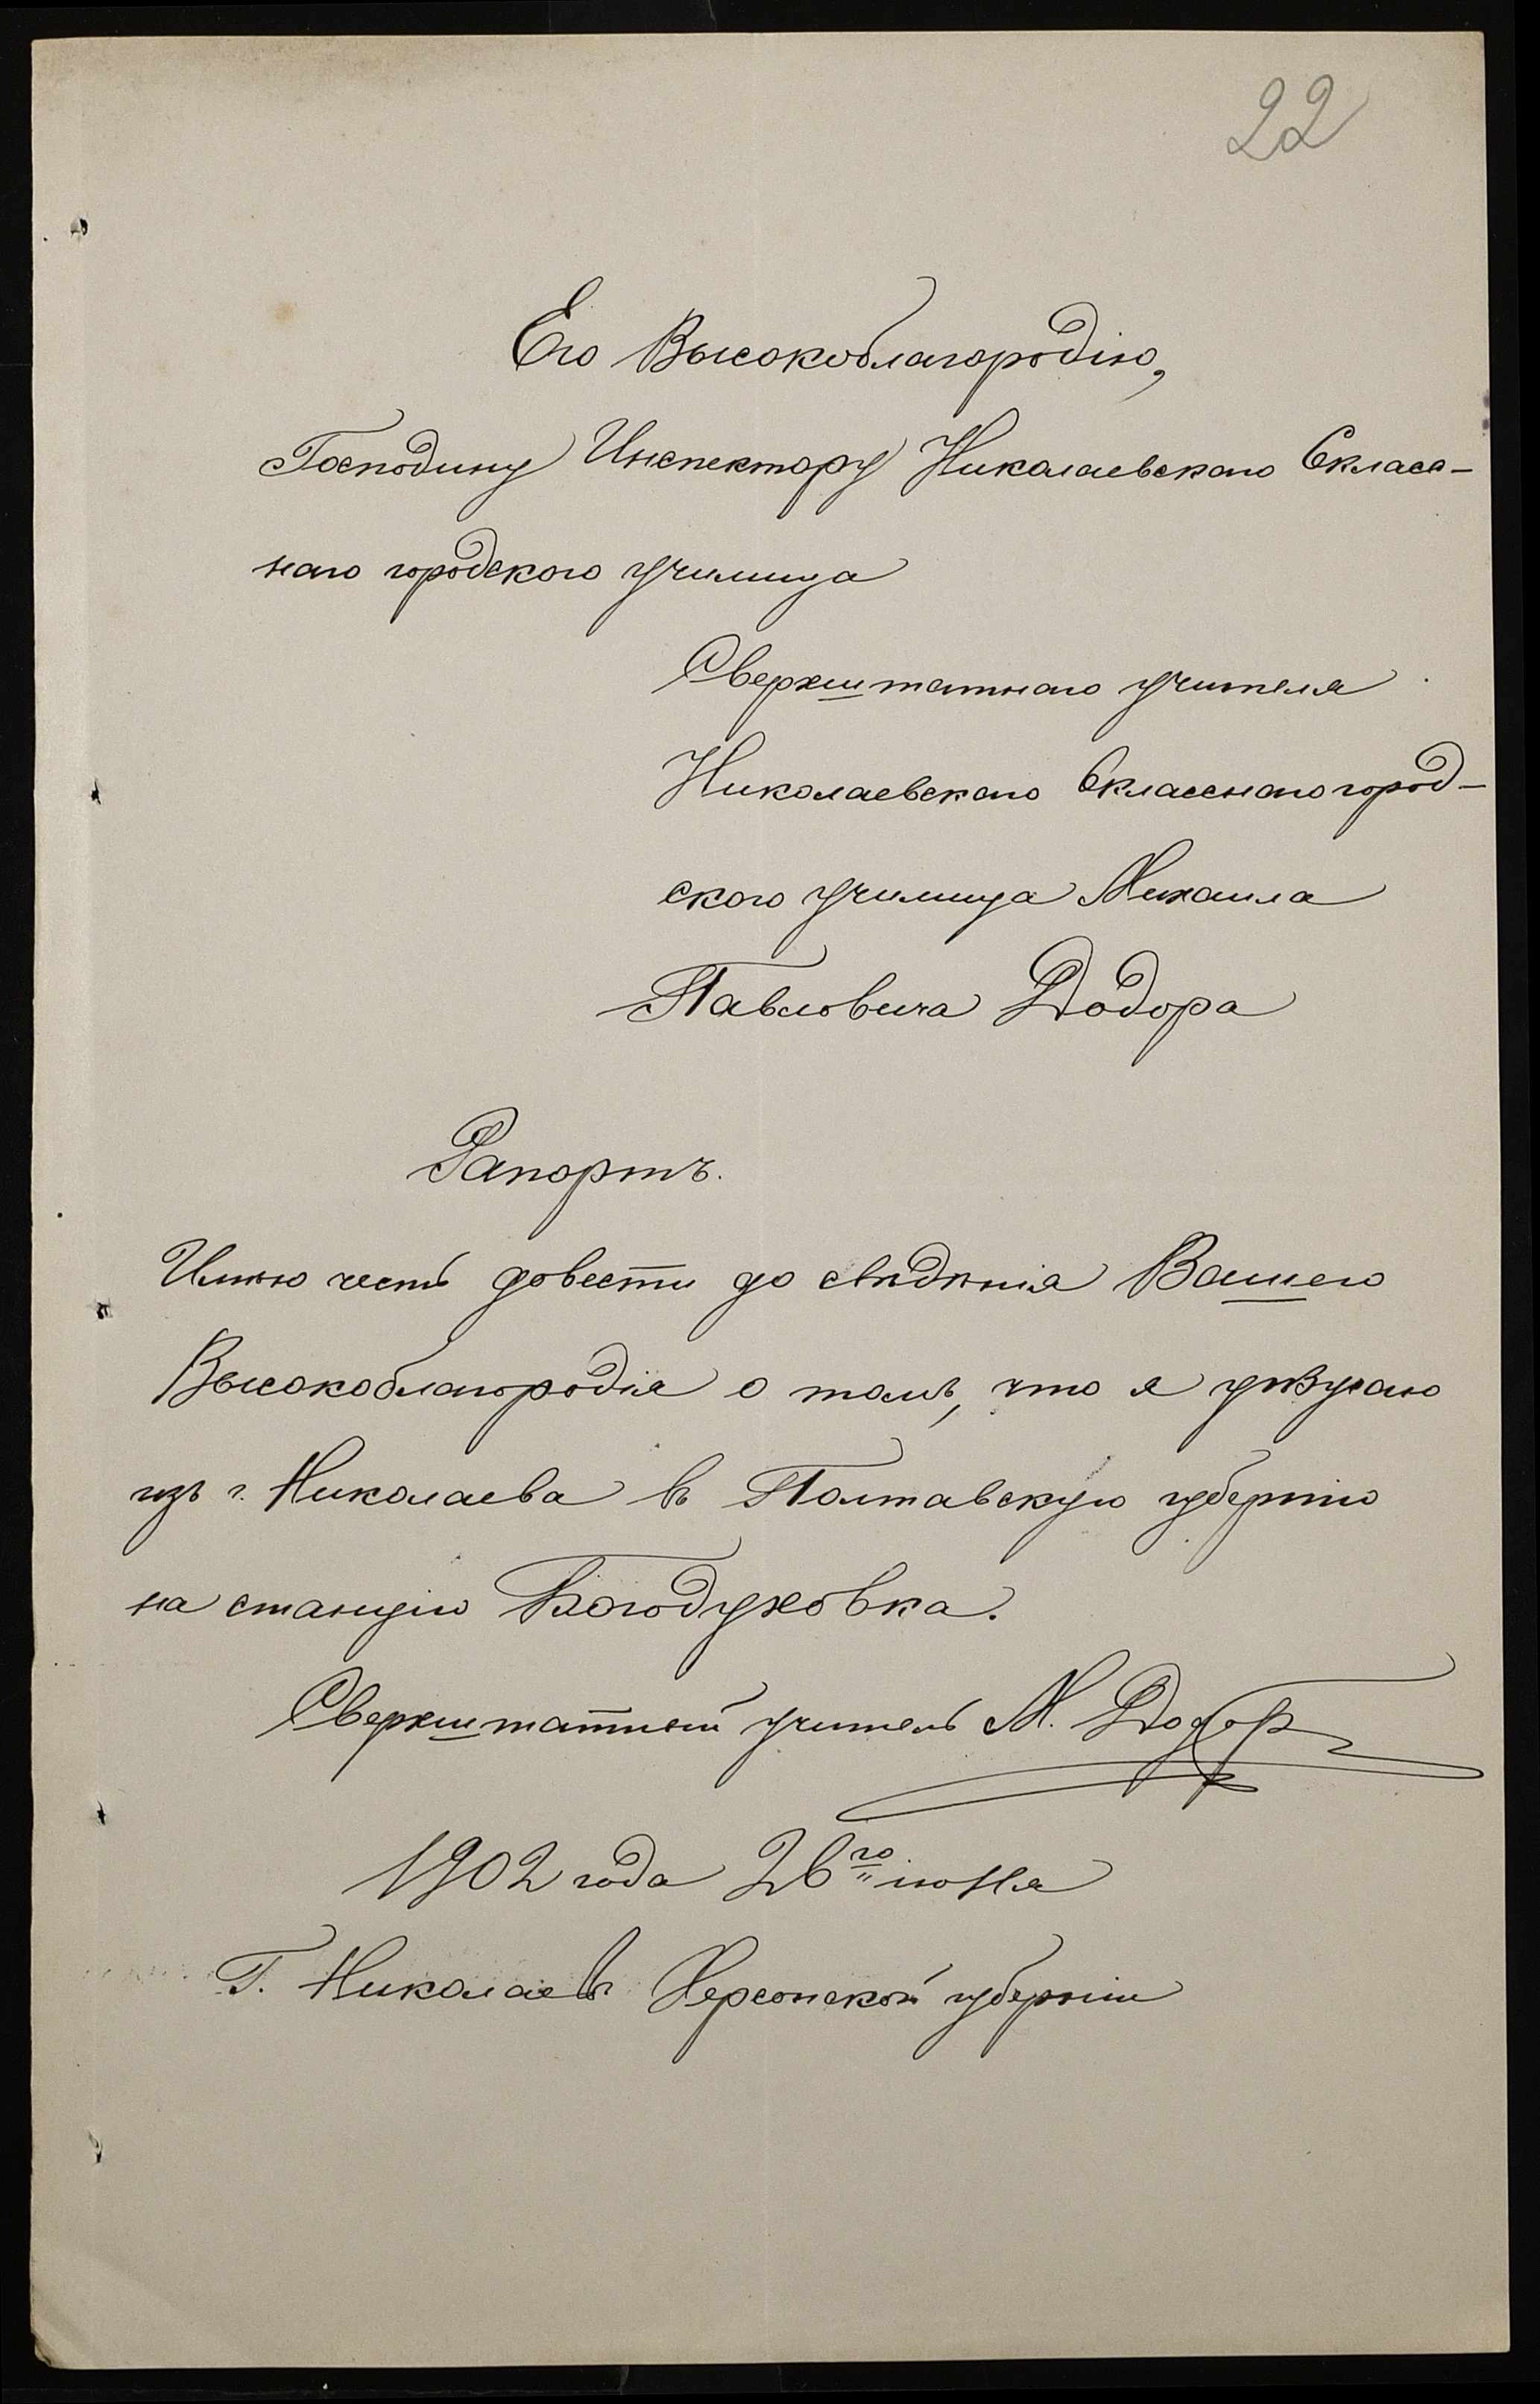 22
Его Высокоблагородію,
Господину Инспектору Николаевскаго 6класс-
наго городского училища
Сверхштатнаго учителя
Николаевскаго 6класснаго город-
ского училища Михаила
Павловича Додора
Рапортъ.
Имѣю честь довести до свѣдѣнія Вашего
Высокоблагородія о томъ, что я уѣзжаю
изъ г. Николаева въ Полтавскую губернію
на станцію Богодуховка.
Сверхштатный учитель М. Додоръ
1902 года 26го іюня
Г. Николаевъ Херсонской губерніи